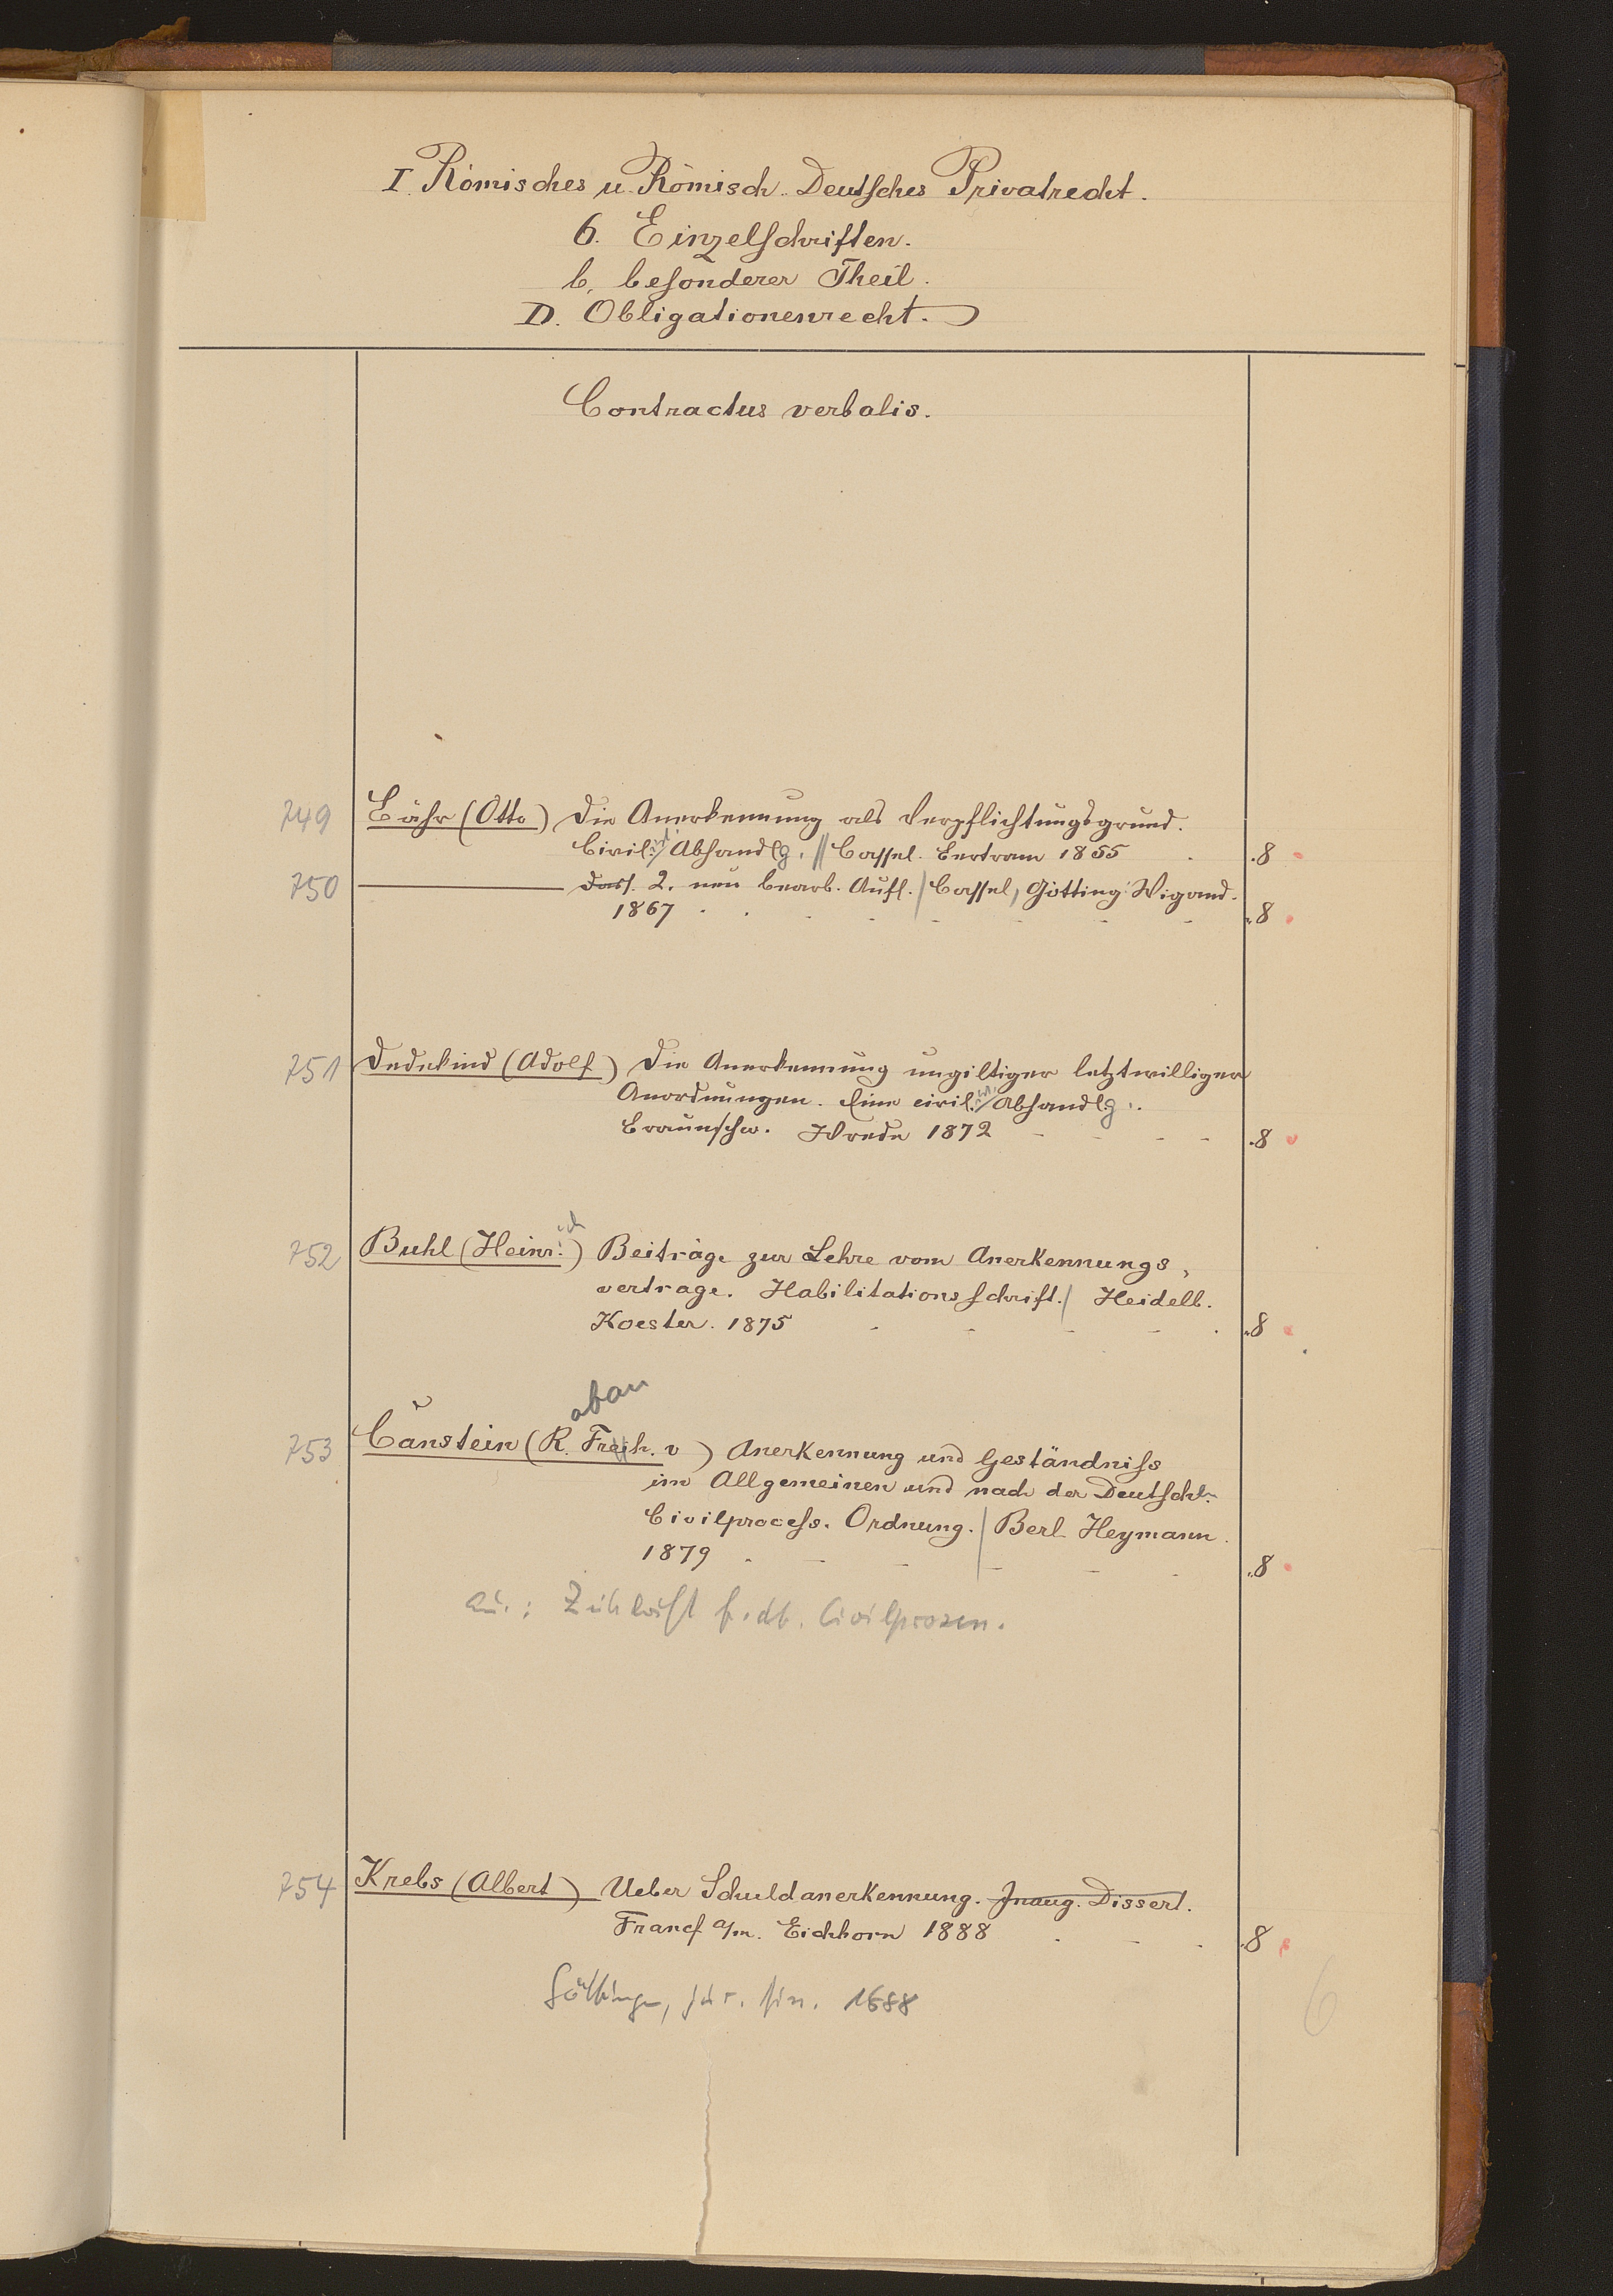 I. Römisches u. Römisch-Deutsches Privatrecht.
6. Einzelschriften.
b. besonderer Theil.
D. Obligationenrecht.
Contractus verbalis.
749 Bähr (Otto) Die Anerkennung als Verpflichtungsgrund.
Civil. Abhandlg. // Cassel. Bertram 1855 . 8
750 Dass. 2. neu bearb. Aufl. / Cassel, Götting Wigand.
1867 . 8
751 Dedekind (Adolf) Die Anerkennung ungiltiger letztwilliger
Anordnungen. Eine civil. Abhandlg.
Braunschw. Wrede 1872 . 8
752 Buhl (Heinr.) Beiträge zur Lehre vom Anerkennungs-
vertrage. Habilitationsschrift. / Heidelb.
Koester. 1875 . 8
753 Canstein (R. Freih. v) Anerkennung und Geständniss
im Allgemeinen und nach der Deutsch.
Civilprocess-Ordnung. / Berl. Heymann.
1879 . 8
754 Krebs (Albert) Ueber Schuldanerkennung. Inaug. Dissert.
Francf a/m. Eichhorn 1888 . 8
Göttingen, jur. Diss. 1888
6